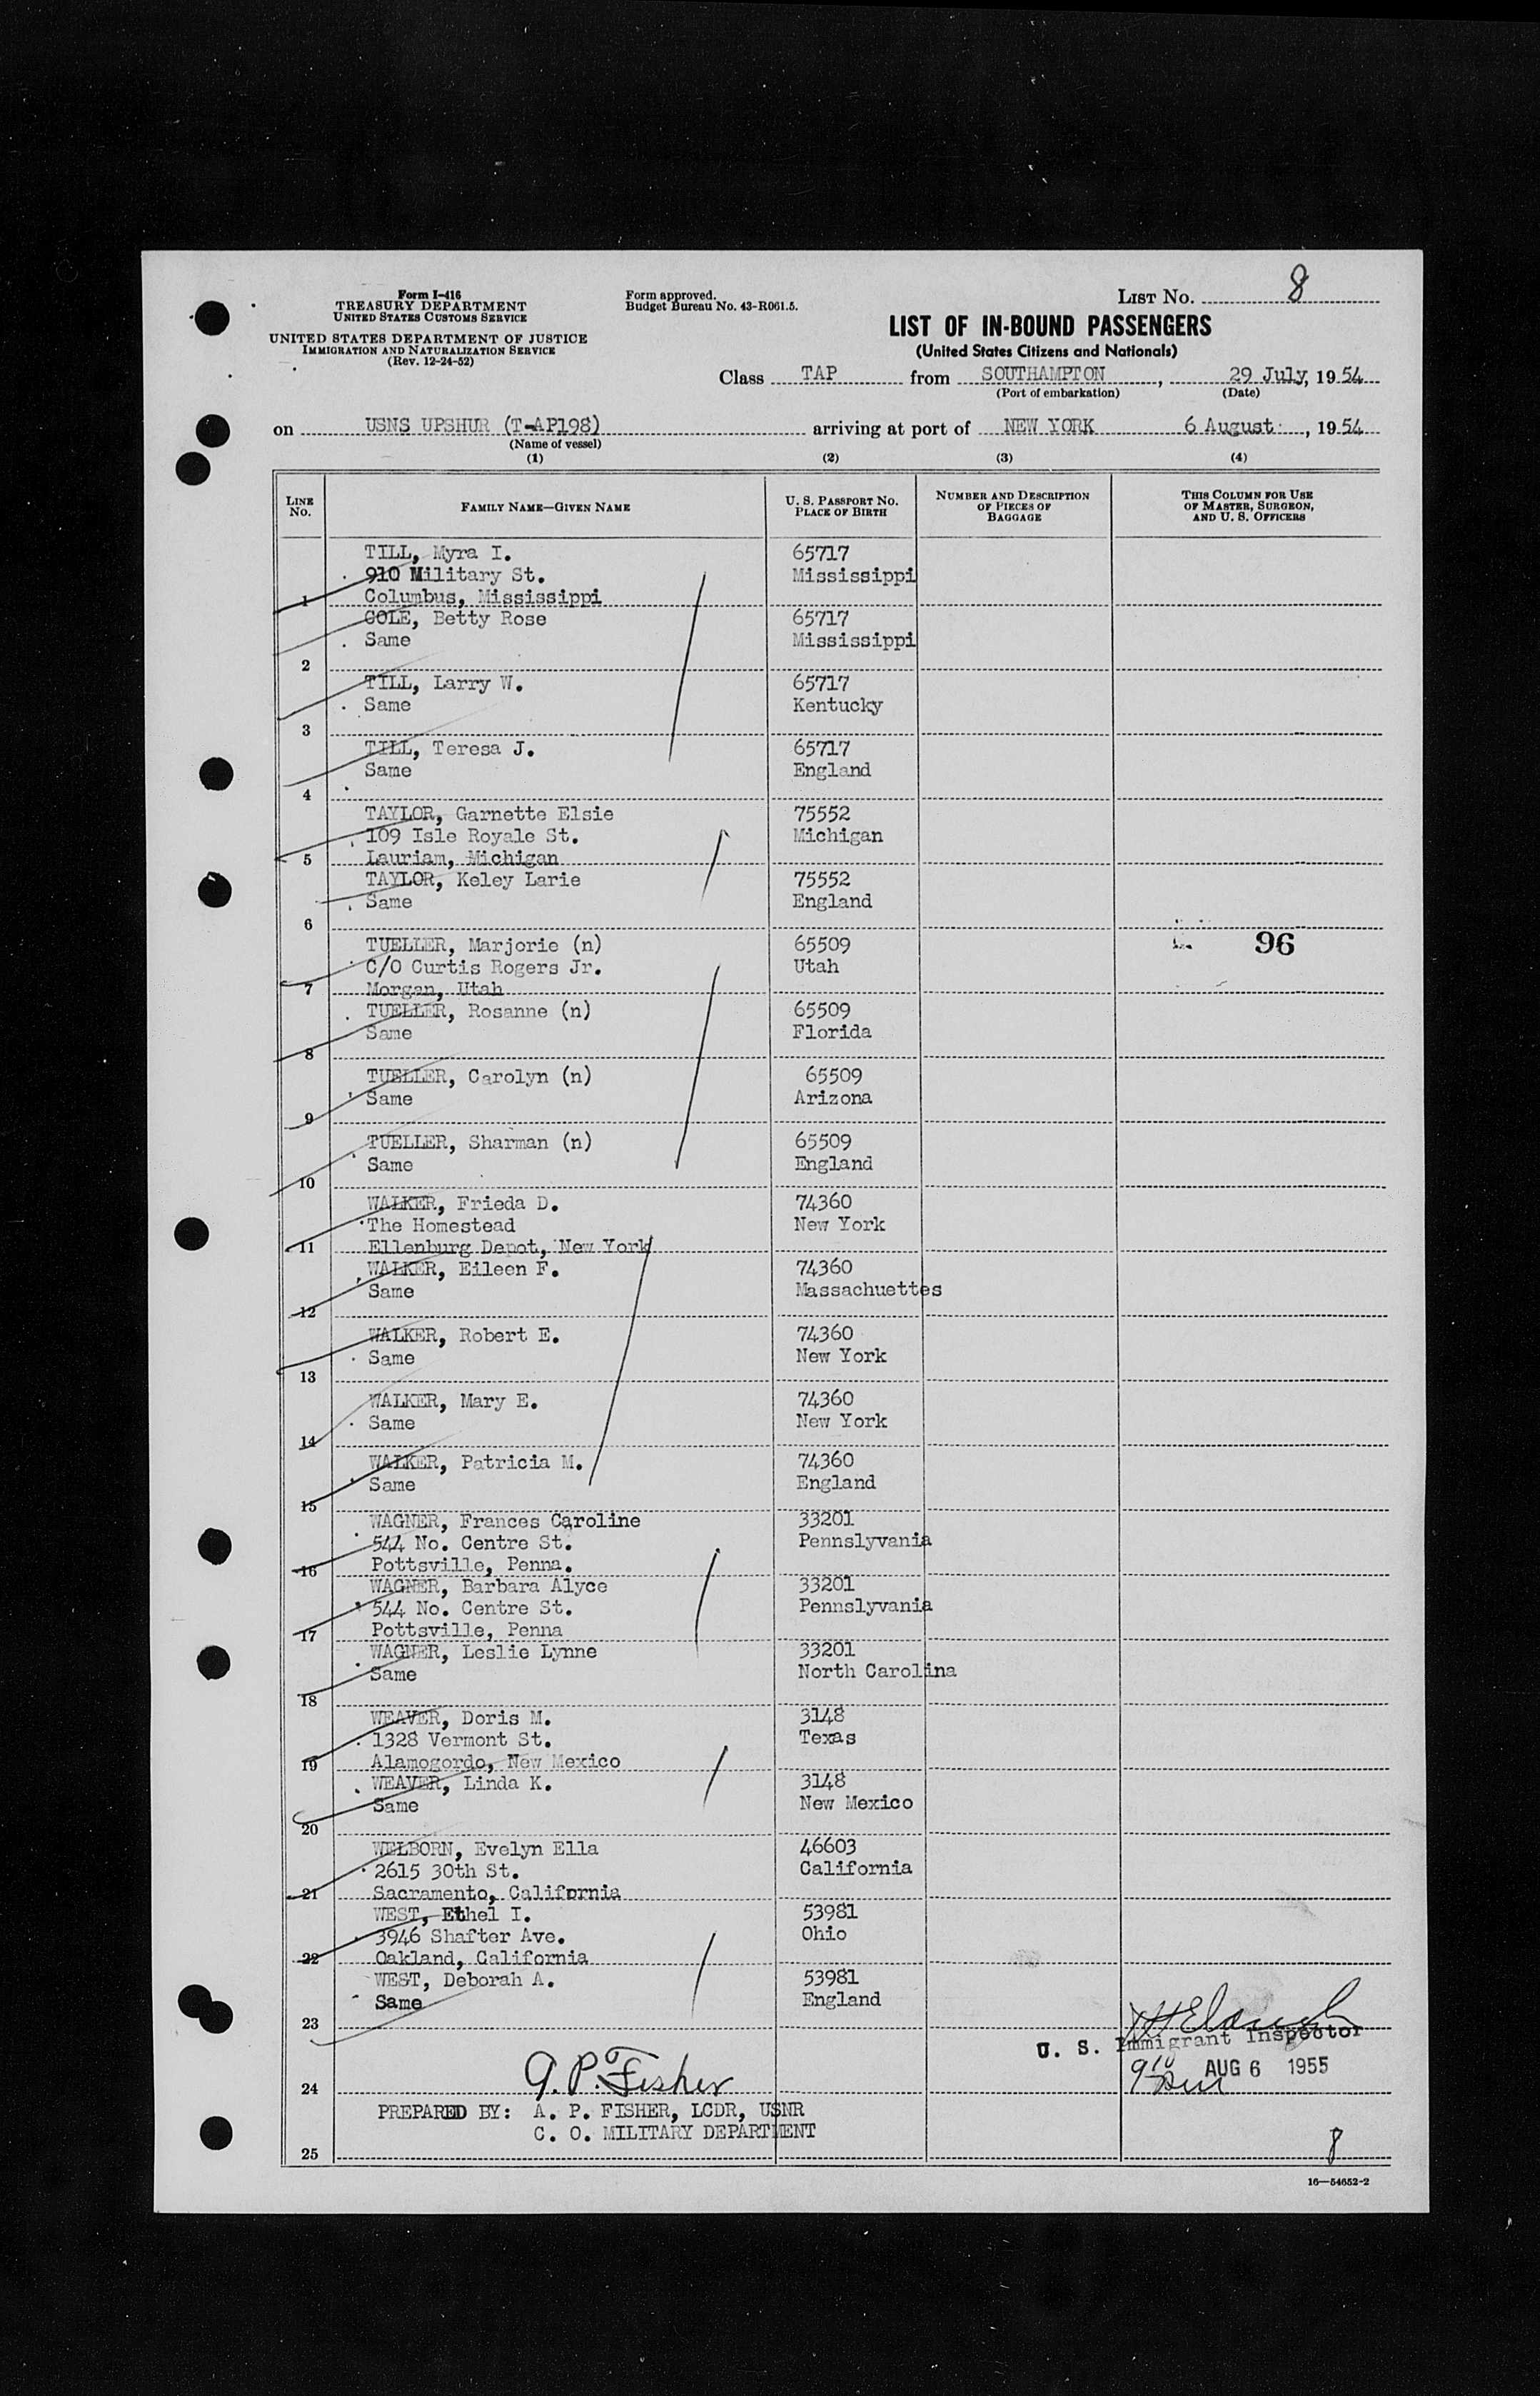 Form I-416
TREASURY DEPARTMENT
UNITED STATES CUSTOMS SERVICE
UNITED STATES DEPARTMENT OF JUSTICE
IMMIGRATION AND NATURALIZATION SERVICE
(Rev. 12-24-52)
Form approved.
Budget Bureau No. 43-R061.5.
LIST NO. 8
LIST OF IN-BOUND PASSENGERS
(United States Citizens and Nationals)
Class TAP from SOUTHAMPTON, 29 July, 1954
(Port of embarkation) (Date)
on USNS UPSHUR (T-AP198) arriving at port of NEW YORK 6 August, 1954
(Name of vessel)
(1) (2) (3) (4)
LINE NO.
FAMILY NAME—GIVEN NAME
U. S. PASSPORT NO.
PLACE OF BIRTH
NUMBER AND DESCRIPTION
OF PIECES OF
BAGGAGE
THIS COLUMN FOR USE
OF MASTER, SURGEON,
AND U. S. OFFICERS
TILL, Myra I. 65717
910 Military St. Mississippi
1 Columbus, Mississippi
COLE, Betty Rose 65717
Same Mississippi
2
TILL, Larry W. 65717
Same Kentucky
3
TILL, Teresa J. 65717
Same England
4
TAYLOR, Garnette Elsie 75552
109 Isle Royale St. Michigan
5 Lauriam, Michigan
TAYLOR, Keley Larie 75552
Same England
6
TUELLER, Marjorie (n) 65509 96
C/O Curtis Rogers Jr. Utah
7 Morgan, Utah
TUELLER, Rosanne (n) 65509
Same Florida
8
TUELLER, Carolyn (n) 65509
Same Arizona
9
TUELLER, Sharman (n) 65509
Same England
10
WALKER, Frieda D. 74360
The Homestead New York
11 Ellenburg Depot, New York
WALKER, Eileen F. 74360
Same Massachuettes
12
WALKER, Robert E. 74360
Same New York
13
WALKER, Mary E. 74360
Same New York
14
WALKER, Patricia M. 74360
Same England
15
WAGNER, Frances Caroline 33201
544 No. Centre St. Pennslyvania
16 Pottsville, Penna.
WAGNER, Barbara Alyce 33201
544 No. Centre St. Pennslyvania
17 Pottsville, Penna
WAGNER, Leslie Lynne 33201
Same North Carolina
18
WEAVER, Doris M. 3148
1328 Vermont St. Texas
19 Alamogordo, New Mexico
WEAVER, Linda K. 3148
Same New Mexico
20
WELBORN, Evelyn Ella 46603
2615 30th St. California
21 Sacramento, California
WEST, Ethel I. 53981
3946 Shafter Ave. Ohio
22 Oakland, California
WEST, Deborah A. 53981
Same England
23
U. S. Immigrant Inspector
A. P. Fisher AUG 6 1955
24
PREPARED BY: A. P. FISHER, LCDR, USNR
C. O. MILITARY DEPARTMENT
25 8
16—54652-2